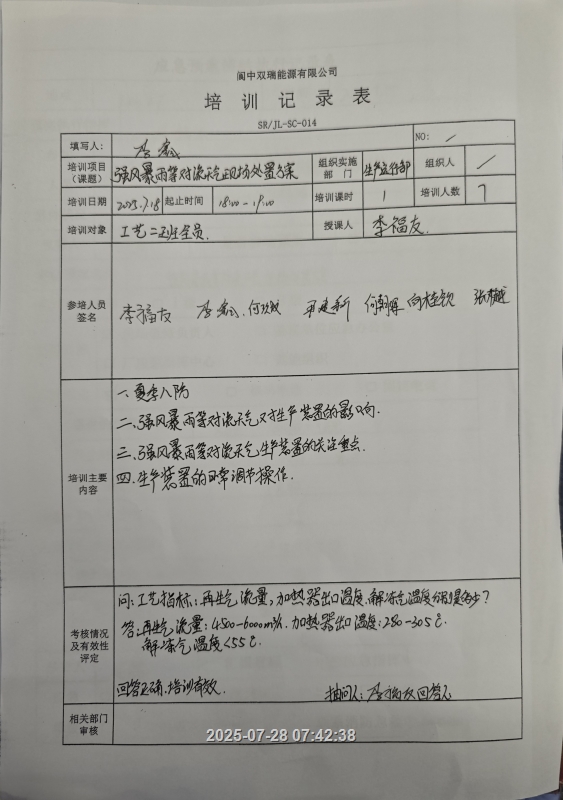 阆中双瑞能源有限公司
培训记录表
SR/JL-SC-014
填写人： NO: /
培训项目（课题） 强风暴雨等对流天气现场处置方案 组织实施部门 生产运行部 组织人 /
培训日期 2025.7.18 起止时间 18:00-19:00 培训课时 1 培训人数 7
培训对象 工艺二班全员. 授课人 李福友.
参培人员签名 李福友
培训主要内容
一. 夏季八防
二. 强风暴雨等对流天气对生产装置的影响.
三. 强风暴雨等对流天气生产装置的关注重点.
四. 生产装置的日常调节操作.
考核情况及有效性评定
问: 工艺指标: 再生气流量, 加热器出口温度, 解冻气温度分别是多少?
答: 再生气流量: 4500-6000m³/h. 加热器出口温度: 280-305℃.
解冻气温度<55℃.
回答正确, 培训有效. 抽问人: 李福友 回答人
相关部门审核
2025-07-28 07:42:38